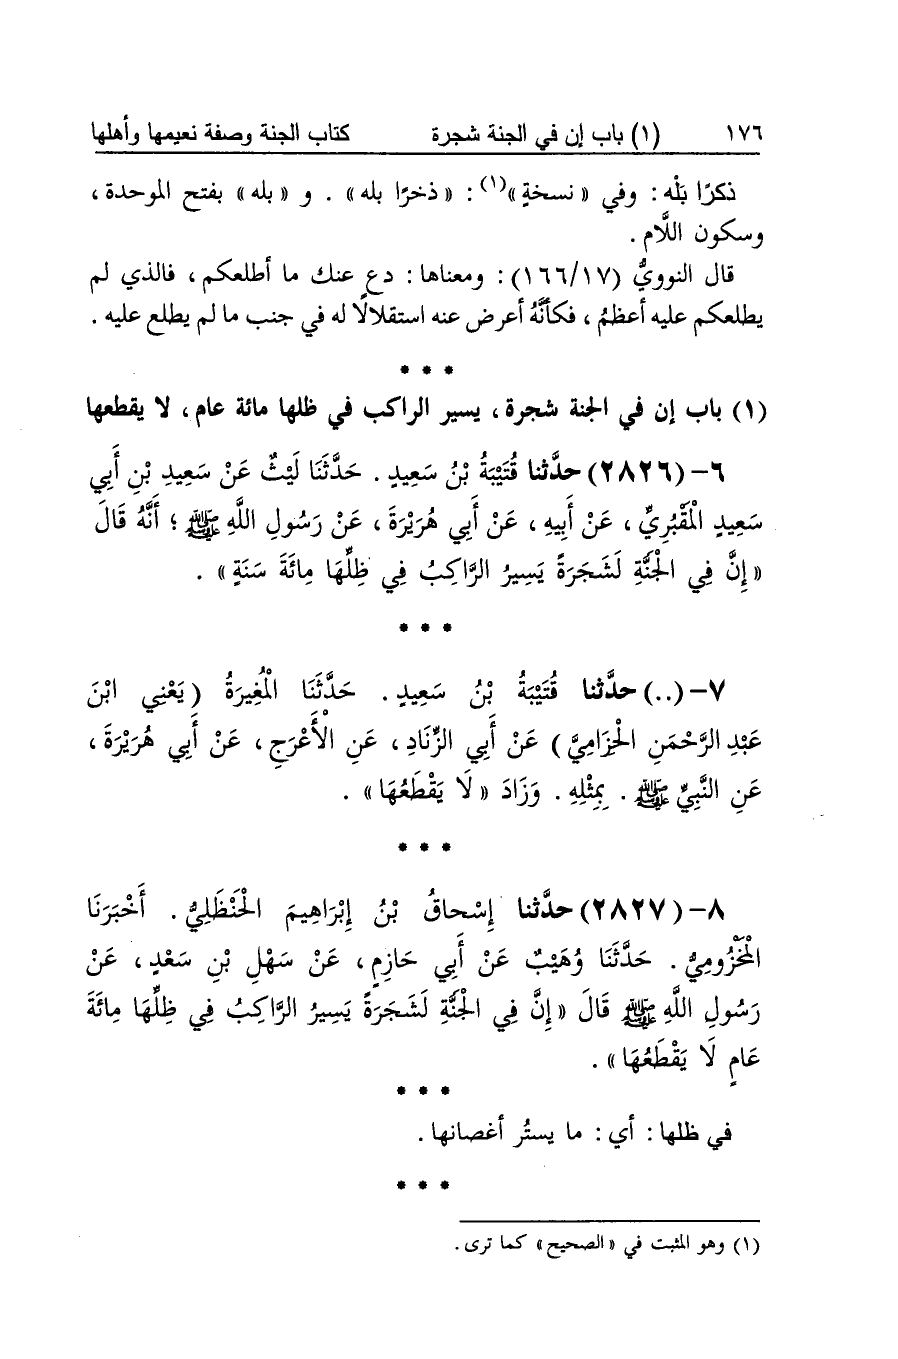 ١٧٦ (١) باب إن في الجنة شجرة كتاب الجنة وصفة نعيمها وأهلها
ذكرًا بَلْه : وفي « نسخةٍ »(١) : « ذخرًا بله » . و « بله » بفتح الموحدة ،
وسكون اللَّام .
قال النوويُّ (١٦٦/١٧) : ومعناها : دع عنك ما أطلعكم ، فالذي لم
يطلعكم عليه أعظمُ ، فكأنَّهُ أعرض عنه استقلالًا له في جنب ما لم يطلع عليه .
* * *
(١) باب إن في الجنة شجرة ، يسير الراكب في ظلها مائة عام ، لا يقطعها
٦- (٢٨٢٦) حدَّثنا قُتَيْبَةُ بْنُ سَعِيدٍ . حَدَّثَنَا لَيْثٌ عَنْ سَعِيدِ بْنِ أَبِي
سَعِيدٍ الْمَقْبُرِيِّ ، عَنْ أَبِيهِ ، عَنْ أَبِي هُرَيْرَةَ ، عَنْ رَسُولِ اللَّهِ ﷺ ؛ أَنَّهُ قَالَ
« إِنَّ فِي الْجَنَّةِ لَشَجَرَةً يَسِيرُ الرَّاكِبُ فِي ظِلِّهَا مِائَةَ سَنَةٍ » .
* * *
٧- (..) حدَّثنا قُتَيْبَةُ بْنُ سَعِيدٍ . حَدَّثَنَا الْمُغِيرَةُ ( يَعْنِي ابْنَ
عَبْدِ الرَّحْمَنِ الْحِزَامِيَّ ) عَنْ أَبِي الزِّنَادِ ، عَنِ الْأَعْرَجِ ، عَنْ أَبِي هُرَيْرَةَ ،
عَنِ النَّبِيِّ ﷺ . بِمِثْلِهِ . وَزَادَ « لَا يَقْطَعُهَا » .
* * *
٨- (٢٨٢٧) حدَّثنا إِسْحاقُ بْنُ إِبْرَاهِيمَ الْحَنْظَلِيُّ . أَخْبَرَنَا
الْمَخْزُومِيُّ . حَدَّثَنَا وُهَيْبٌ عَنْ أَبِي حَازِمٍ ، عَنْ سَهْلِ بْنِ سَعْدٍ ، عَنْ
رَسُولِ اللَّهِ ﷺ قَالَ « إِنَّ فِي الْجَنَّةِ لَشَجَرَةً يَسِيرُ الرَّاكِبُ فِي ظِلِّهَا مِائَةَ
عَامٍ لَا يَقْطَعُهَا » .
* * *
في ظلها : أي : ما يستُر أغصانها .
* * *
(١) وهو المثبت في « الصحيح » كما ترى .